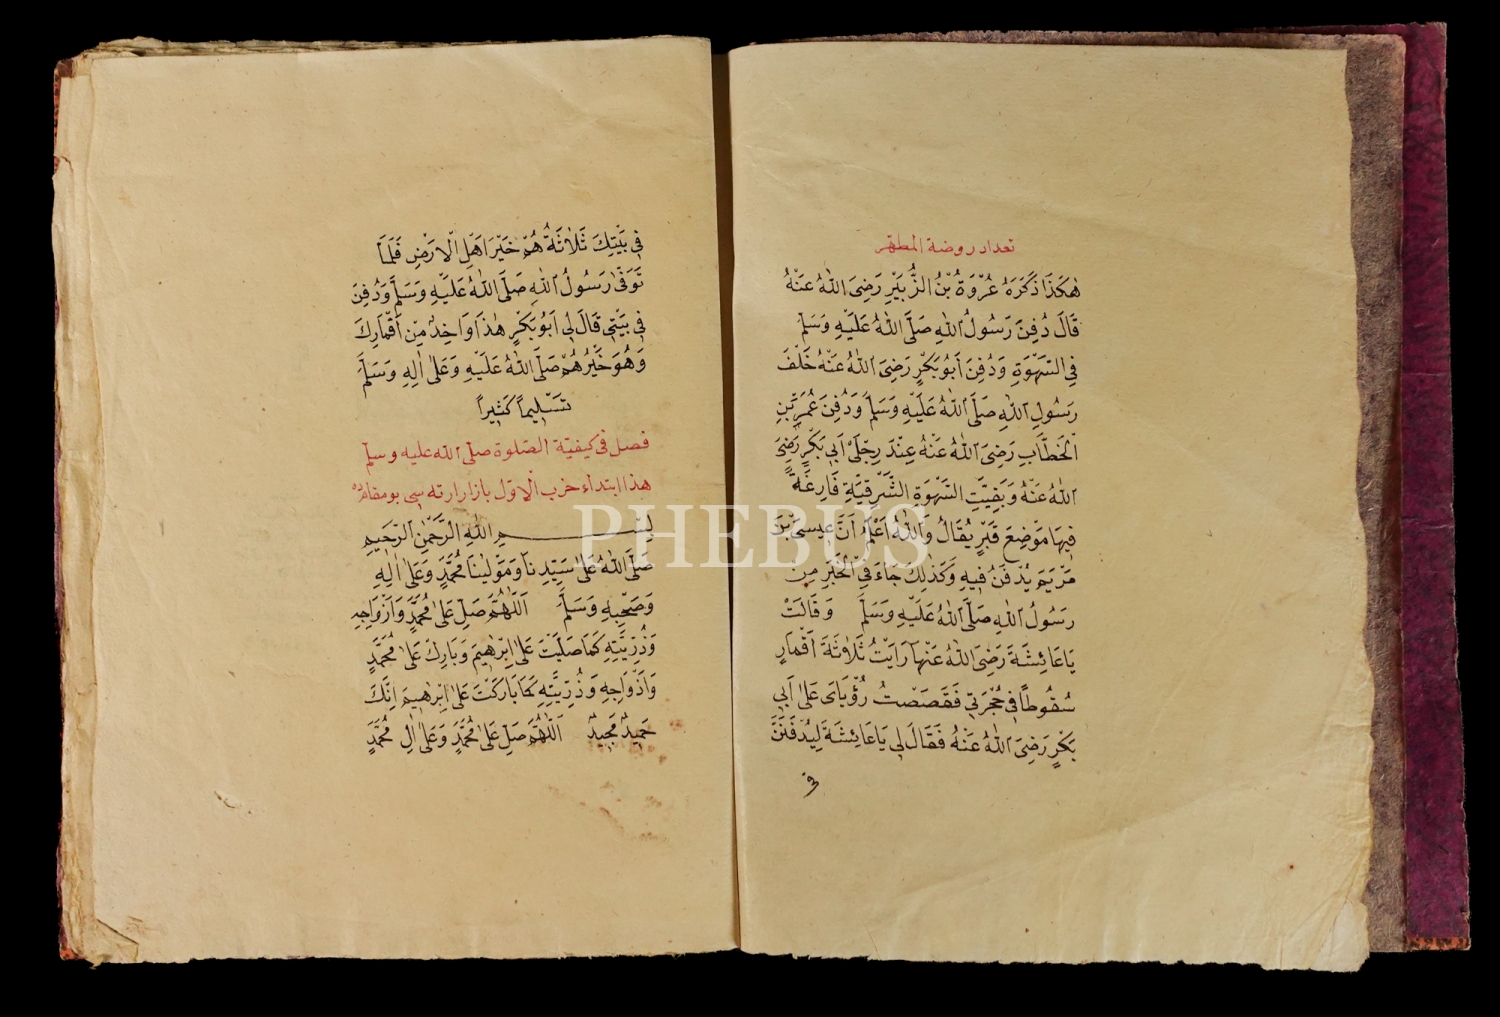 تعداد روضة المطهر
هٰكَذَا ذَكَرَهُ عُرْوَةُ بْنُ الزُّبَيْرِ رَضِىَ اللّٰهُ عَنْهُ
قَالَ دُفِنَ رَسُولُ اللّٰهِ صَلَّى اللّٰهُ عَلَيْهِ وَسَلَّمَ
فِى السَّهْوَةِ وَدُفِنَ اَبُو بَكْرٍ رَضِىَ اللّٰهُ عَنْهُ خَلْفَ
رَسُولِ اللّٰهِ صَلَّى اللّٰهُ عَلَيْهِ وَسَلَّمَ وَدُفِنَ عُمَرُ بْنِ
الْخَطَّابِ رَضِىَ اللّٰهُ عَنْهُ عِنْدَ رِجْلَىْ اَبِى بَكْرٍ رَضِىَ
اللّٰهُ عَنْهُ وَبَقِيَتِ السَّهْوَةُ الشَّرْقِيَّةِ فَارِغَةً
فِيهَا مَوْضِعَ قَبْرٍ يُقَالُ وَاللّٰهُ اَعْلَمُ اَنَّ عِيسىَ بْنَ
مَرْيَمَ يُدْفَنُ فِيهِ وَكَذٰلِكَ جَاءَ فِى الْخَبَرِ مِنْ
رَسُولُ اللّٰهِ صَلَّى اللّٰهُ عَلَيْهِ وَسَلَّمَ وَقَالَتْ
يَا عَائِشَةَ رَضِىَ اللّٰهُ عَنْهَا رَاَيْتُ ثَلَاثَةَ اَقْمَارٍ
سُقُوطًا فِى حُجْرَتِى فَقَصَصْتُ رُؤْيَاىَ عَلٰى اَبِى
بَكْرٍ رَضِىَ اللّٰهُ عَنْهُ فَقَالَ لِى يَا عَائِشَةَ لِيُدْفَنَنَّ
فى
فِى بَيْتِكَ ثَلَاثَةُ هُمْ خَيْرَ اَهْلِ الْاَرْضِ فَلَمَّا
تَوَفّٰى رَسُولُ اللّٰهِ صَلَّى اللّٰهُ عَلَيْهِ وَسَلَّمَ وَدُفِنَ
فِى بَيْتِى قَالَ لِى اَبُو بَكْرٍ هٰذَا وَاحِدٌ مِنْ اَقْمَارِكَ
وَهُوَ خَيْرُهُمْ صَلَّى اللّٰهُ عَلَيْهِ وَعَلٰى اٰلِهِ وَسَلَّمَ
تَسْلِيمًا كَثِيرًا
فصل فى كيفية الصلوة صلى الله عليه وسلم
هذا ابتداء حزب الاول بازار ارته سى بو مقامده
بِسْــــمِ اللّٰهِ الرَّحْمٰنِ الرَّحِيمِ
صَلَّى اللّٰهُ عَلٰى سَيِّدِنَا وَمَوْلٰينَا مُحَمَّدٍ وَعَلٰى اٰلِهِ
وَصَحْبِهِ وَسَلَّمَ اَللّٰهُمَّ صَلِّ عَلٰى مُحَمَّدٍ وَاَزْوَاجِهِ
وَذُرِّيَّتِهِ كَمَا صَلَّيْتَ عَلٰى اِبْرٰهِيمَ وَبَارِكْ عَلٰى مُحَمَّدٍ
وَاَزْوَاجِهِ وَذُرِّيَّتِهِ كَمَا بَارَكْتَ عَلٰى اِبْرٰهِيمَ اِنَّكَ
حَمِيدٌ مَجِيدٌ اَللّٰهُمَّ صَلِّ عَلٰى مُحَمَّدٍ وَعَلٰى اٰلِ مُحَمَّدٍ
PHEBUS